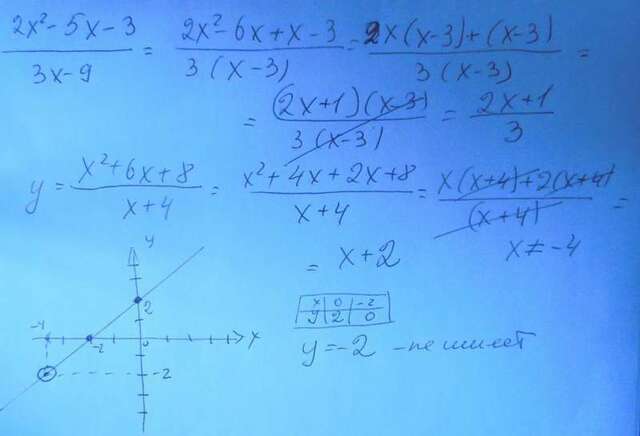 (2x² - 5x - 3)/(3x - 9) = (2x² - 6x + x - 3)/(3(x - 3)) = (2x(x - 3) + (x - 3))/(3(x - 3)) =
= ((2x + 1)(x - 3))/(3(x - 3)) = (2x + 1)/3
y = (x² + 6x + 8)/(x + 4) = (x² + 4x + 2x + 8)/(x + 4) = (x(x + 4) + 2(x + 4))/(x + 4) =
= x + 2
x ≠ -4
x 0 -2
y 2 0
y = -2 - не имеет
y
2
-4
-2
0
x
-2